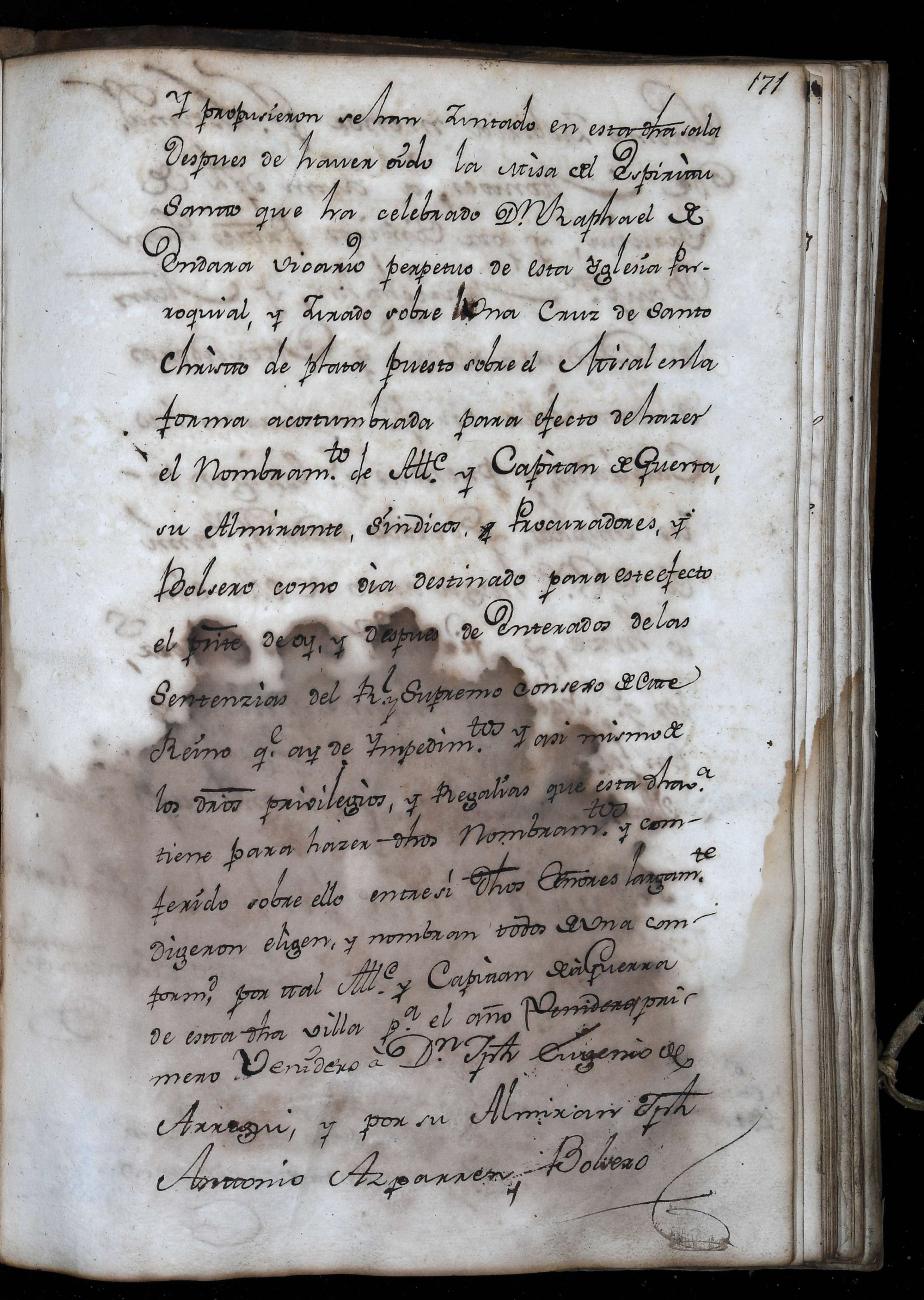 171
Y propusieron se han Juntado en esta dha sala
Despues de haver oido la Misa del Espiritu
Santo que ha celebrado Dn. Raphael de
Endara vicario perpetuo de esta Yglesia Par-
roquial, y Jurado sobre Una Cruz de Santo
Christo de plata puesto sobre el Misal en la
forma acostumbrada para efecto de hazer
el Nombram.to de Alle. y Capitan de Guerra,
su Almirante, Sindicos, y Procuradores, y
Bolsero como dia destinado para este efecto
el pnte de oy, y despues de Enterados de las
Sentenzias del Rl y Supremo consero de este
Reino q.e ay de Ympedim.tos y asi mismo de
los dros privilegios, y Regalias que esta dha v.a
tiene para hazer dhos Nombram.tos y com-
ferido sobre ello entre si dhos Señores largam.te
Digeron eligen, y nombran todos de Una com-
form.d por tal Alle. y Capitan de à Guerra
de esta dha villa p.a el año Venidero pri-
mero Venidero à Dn. Jph Eugenio de
Arregui, y por su Almiran Jph
Anttonio Azparren y Bolsero